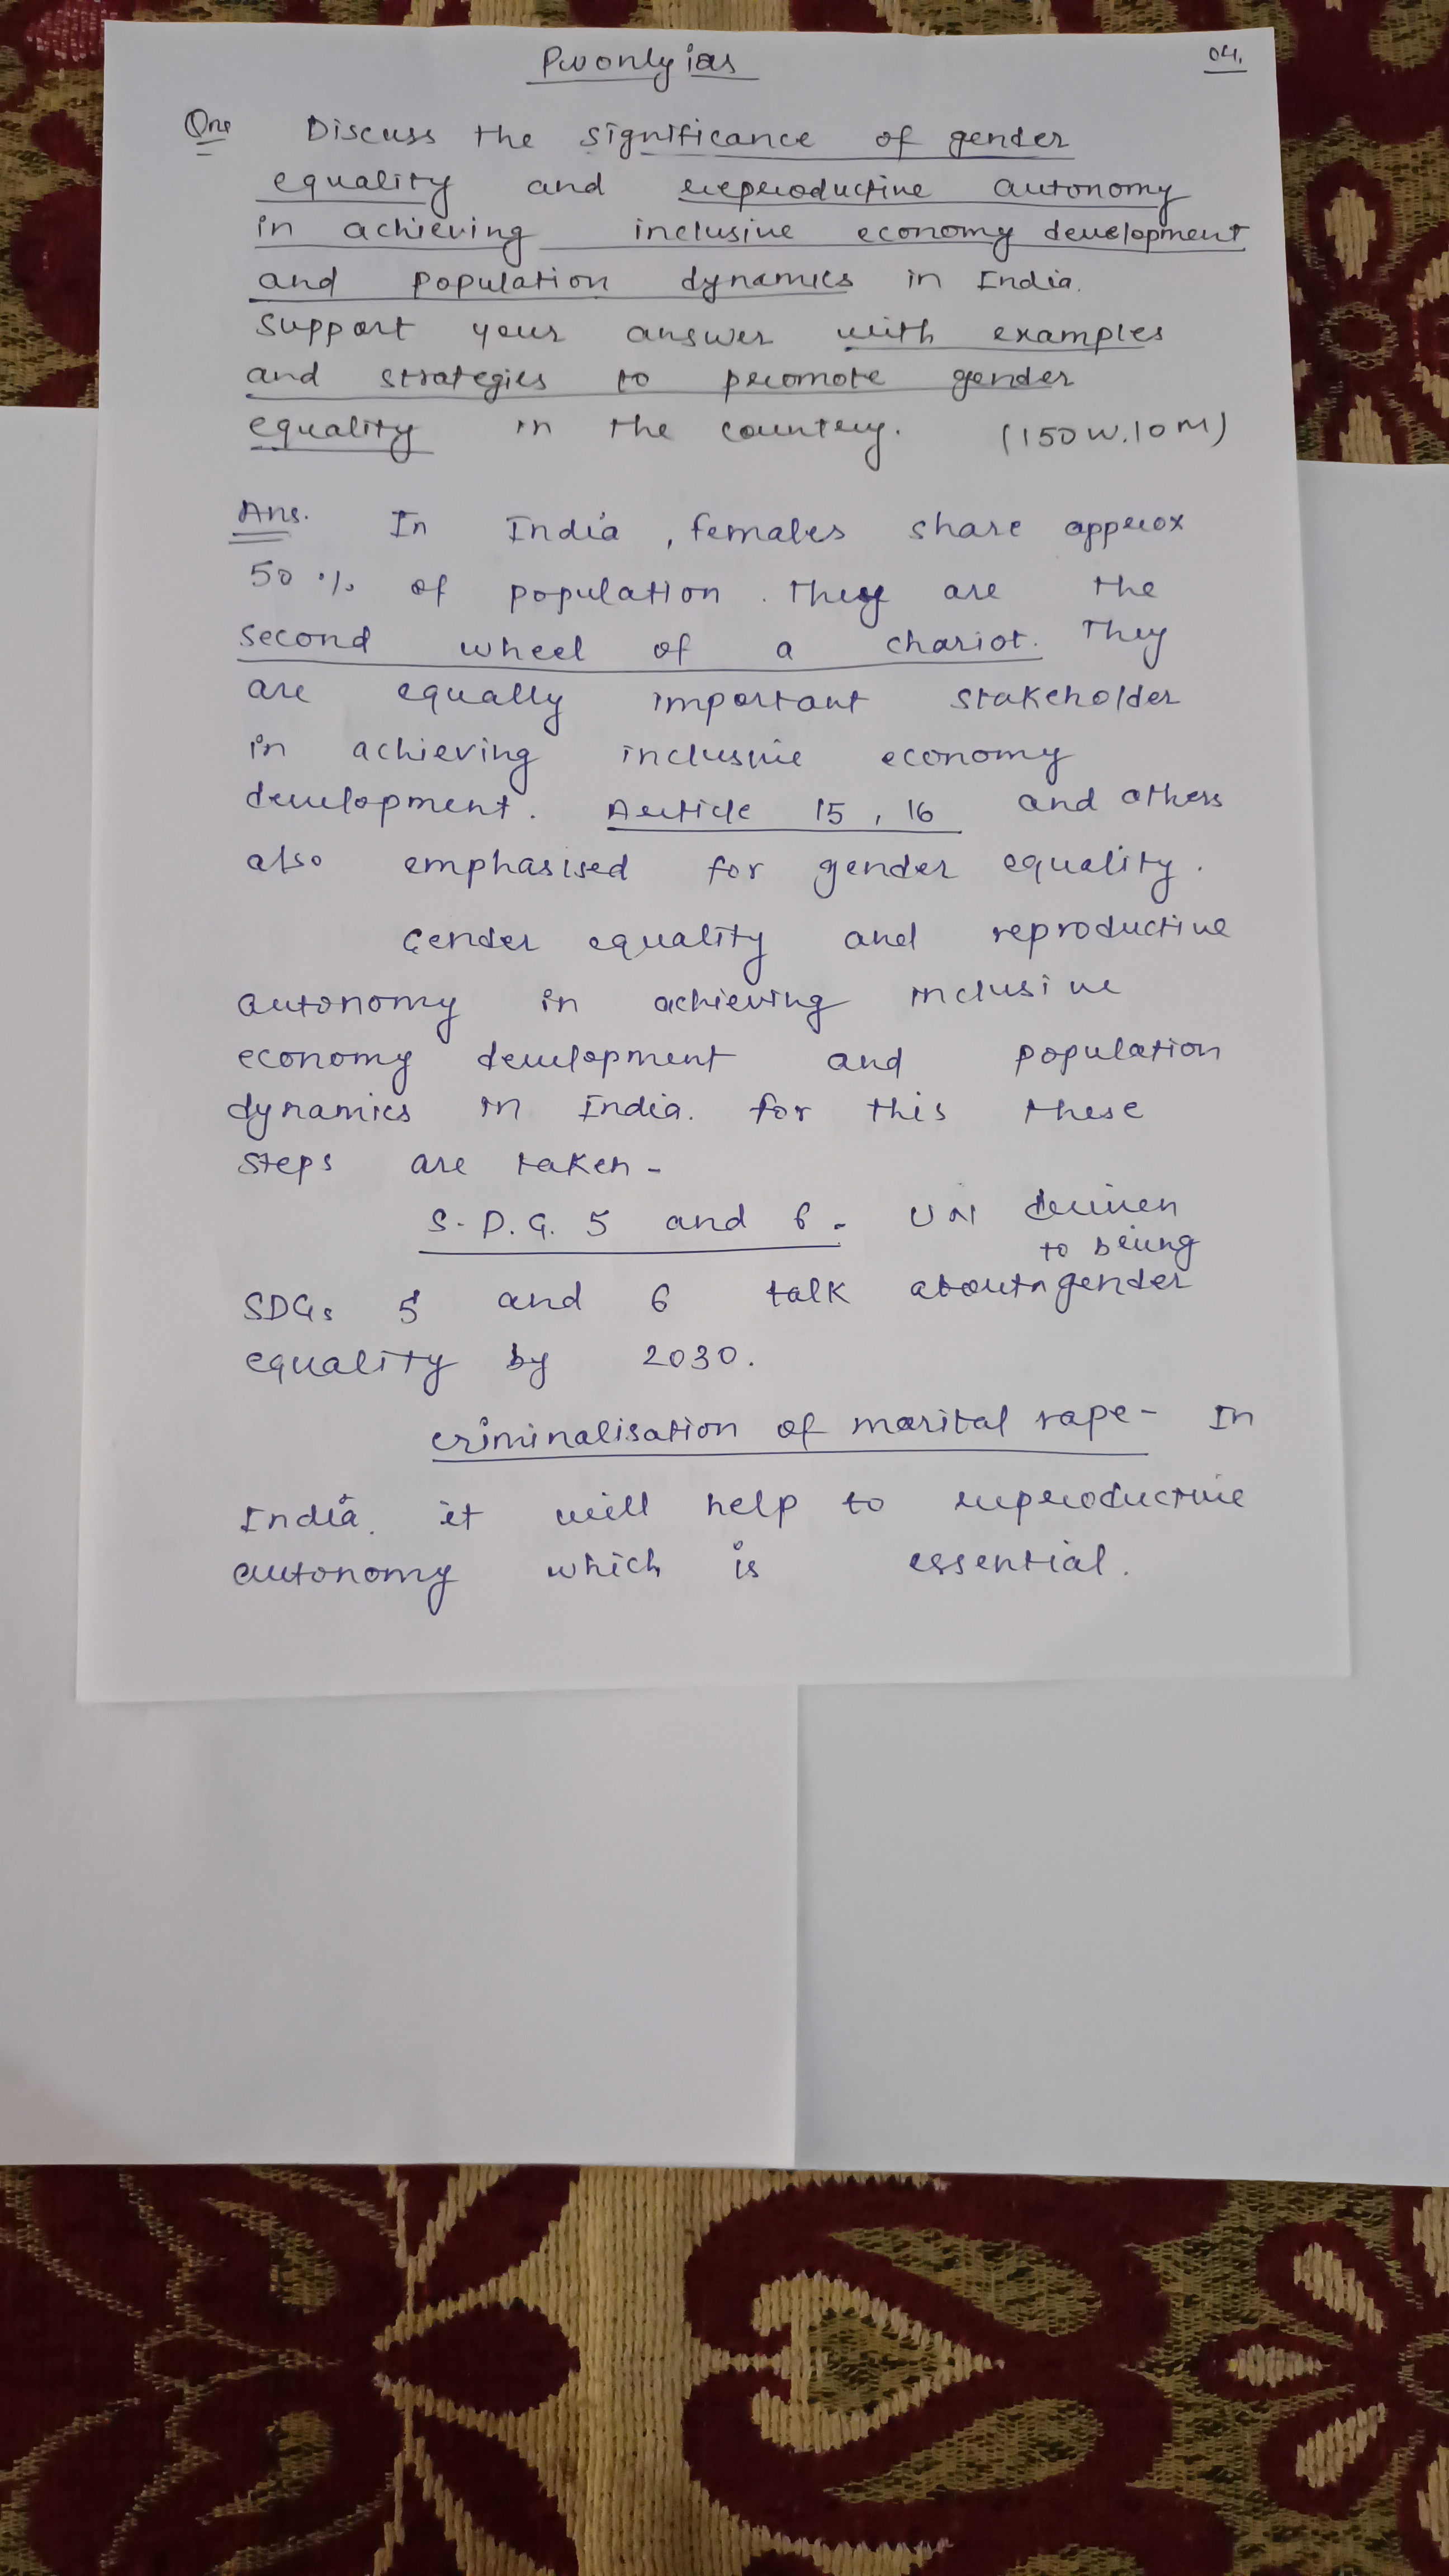 Pwonlyias
04.
Qns Discuss the significance of gender
equality and reproductive autonomy
in achieving inclusive economy development
and population dynamics in India.
Support your answer with examples
and strategies to promote gender
equality in the country. (150W.10M)
Ans. In India, females share approx
50% of population. They are the
second wheel of a chariot. They
are equally important stakeholder
in achieving inclusive economy
development. Article 15, 16 and others
also emphasised for gender equality.
Gender equality and reproductive
autonomy in achieving inclusive
economy development and population
dynamics in India. for this these
steps are taken-
S.D.G. 5 and 6- UN driven
to being
SDGs 5 and 6 talk about gender
equality by 2030.
criminalisation of marital rape- In
India. it will help to reproductive
autonomy which is essential.